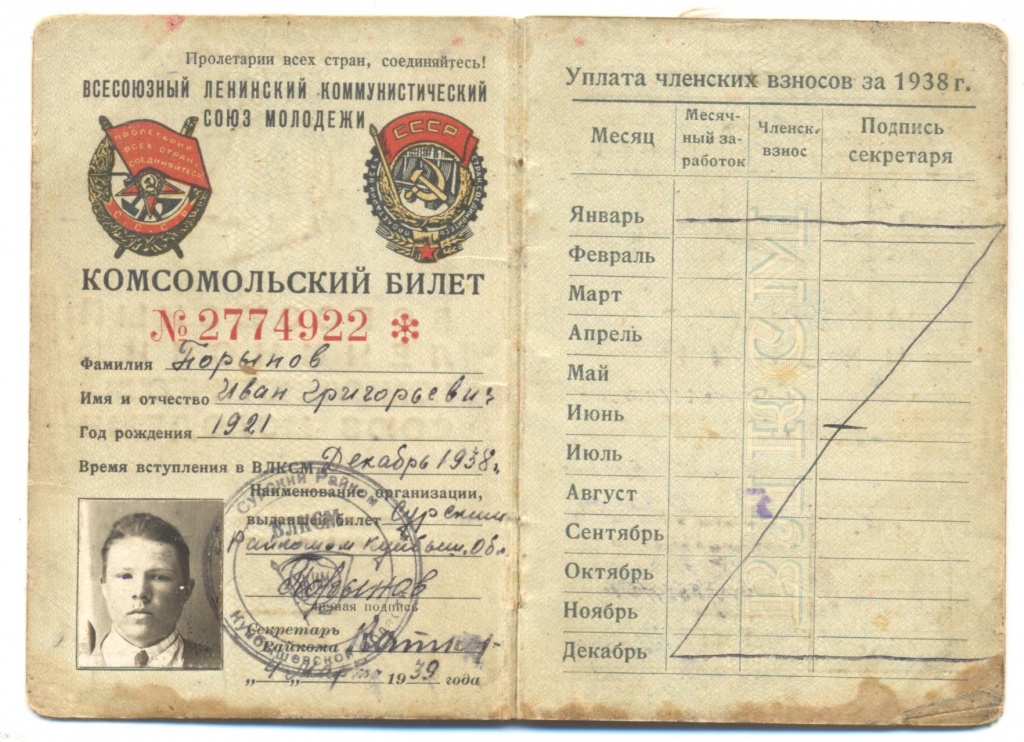 Пролетарии всех стран, соединяйтесь!
ВСЕСОЮЗНЫЙ ЛЕНИНСКИЙ КОММУНИСТИЧЕСКИЙ
СОЮЗ МОЛОДЕЖИ
ПРОЛЕТАРИИ
ВСЕХ СТРАН
СОЕДИНЯЙТЕСЬ
С.С.С.Р.
СССР
КОМСОМОЛЬСКИЙ БИЛЕТ
№ 2774922 ✻
Фамилия Порынов
Имя и отчество Иван Григорьевич
Год рождения 1921
Время вступления в ВЛКСМ Декабрь 1938 г
Наименование организации,
выдавшей билет Сурским
Райкомом Куйбыш. Обл.
Порынов
личная подпись
Секретарь
Райкома
"4" март 1939 года
Сурский Райком
ВЛКСМ
Куйбышевской
Уплата членских взносов за 1938 г.
Месяц
Месяч-
ный за-
работок
Членск.
взнос
Подпись
секретаря
Январь
Февраль
Март
Апрель
Май
Июнь
Июль
Август
Сентябрь
Октябрь
Ноябрь
Декабрь
ВЛКСМ